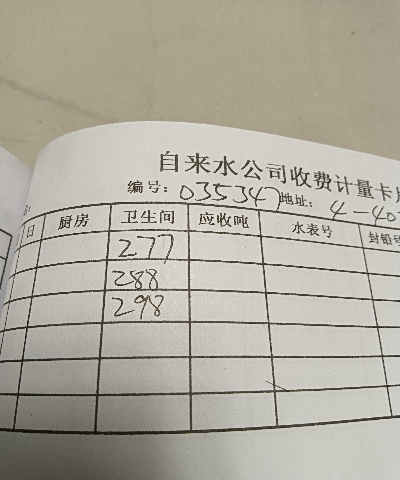 自来水公司收费计量卡
编号: 035347 地址: 4-40
日 厨房 卫生间 应收吨 水表号 封铅号
277
288
298